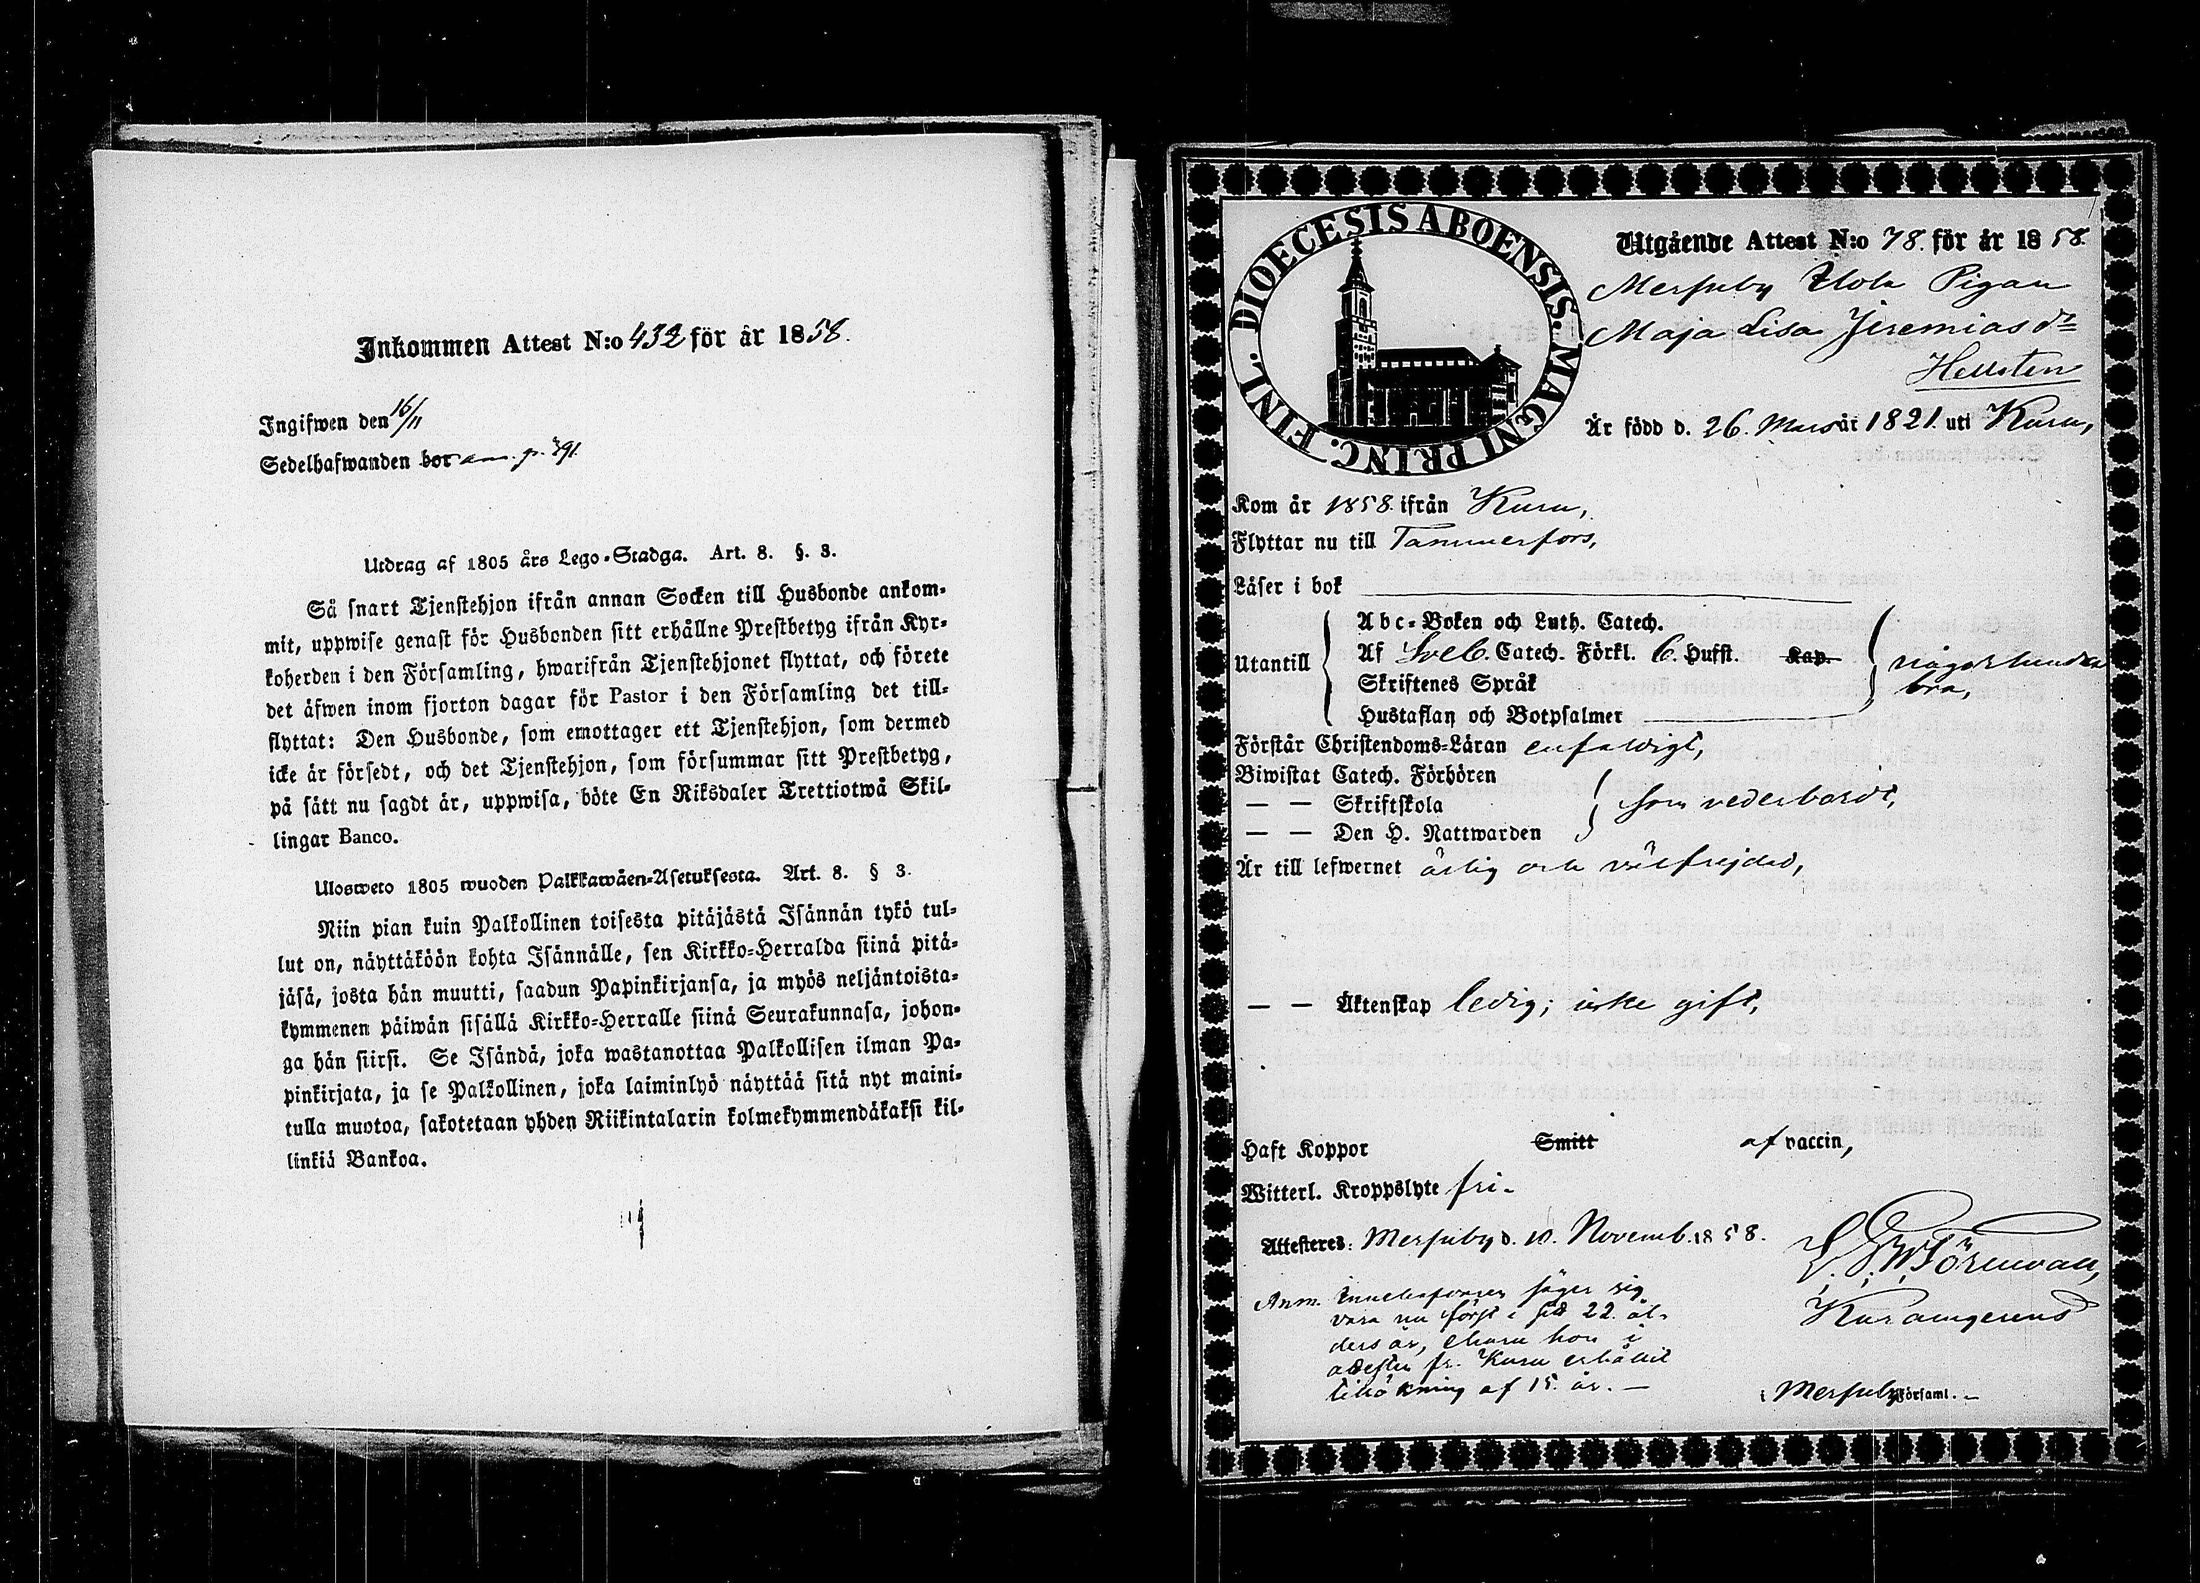 Inkommen Attest N:o 432 för år 1858.
Ingifwen den 16/11
Sedelhafwanden bor ann. p. 391.
Utdrag af 1805 års Lego-Stadga. Art. 8. §. 3.
Så snart Tjenstehjon ifrån annan Socken till Husbonde ankom-
mit, uppwise genast för Husbonden sitt erhållne Prestbetyg ifrån Kyr-
koherden i den Församling, hwarifrån Tjenstehjonet flyttat, och förete
det äfwen inom fjorton dagar för Pastor i den Församling det till-
flyttat: Den Husbonde, som emottager ett Tjenstehjon, som dermed
icke är försedt, och det Tjenstehjon, som försummar sitt Prestbetyg,
på sätt nu sagdt är, uppwisa, böte En Riksdaler Trettiotwå Skil-
lingar Banco.
Ulosweto 1805 wuoden Palkkawäen-Asetuksesta. Art. 8. § 3.
Niin pian kuin Palkollinen toisesta pitäjästä Isännän tykö tul-
lut on, näyttäköön kohta Isännälle, sen Kirkko-Herralda siinä pitä-
jäsä, josta hän muutti, saadun Papinkirjansa, ja myös neljäntoista-
kymmenen päiwän sisällä Kirkko-Herralle siinä Seurakunnasa, johon-
ga hän siirsi. Se Isändä, joka wastanottaa Palkollisen ilman Pa-
pinkirjata, ja se Palkollinen, joka laiminlyö näyttää sitä nyt maini-
tulla muotoa, sakotetaan yhden Riikintalarin kolmekymmendäkaksi kil-
linkiä Bankoa.
DIOECESIS ABOENSIS. MAGNI PRINC. FINL.
Utgående Attest N:o 78. för år 1858.
Messuby Pigan
Maja Lisa Jeremiasdr
Hellsten
Är född d. 26. Mars år 1821. uti Kuru,
Kom år 1858. ifrån Kuru,
Flyttar nu till Tammerfors,
Läser i bok
Utantill
Abc-Boken och Luth. Catech.
Af Sveb. Catech. Förkl. 6. Hufst. Kap.
Skriftenes Språk
Hustaflan och Botpsalmer
någorlunda
bra,
Förstår Christendoms-Läran enfaldigt,
Biwistat Catech. Förhören
— — Skriftskola
— — Den H. Nattwarden
som vederbordt,
Är till lefwernet ärlig och välfrejdad,
— — Äktenskap ledig; icke gift,
Haft Koppor Smitt af vaccin,
Witterl. Kroppslyte fri.
Attesteres: Messuby d. 10. Novemb. 1858.
L. G. W. Törnwall,
Anm. Innehafvaren säger sig
vara nu först i sitt 22. ål-
ders år, ehuru hon i
attesten fr. Kuru erhållit
tillökning af 15. år. —
i Messuby Församl. -